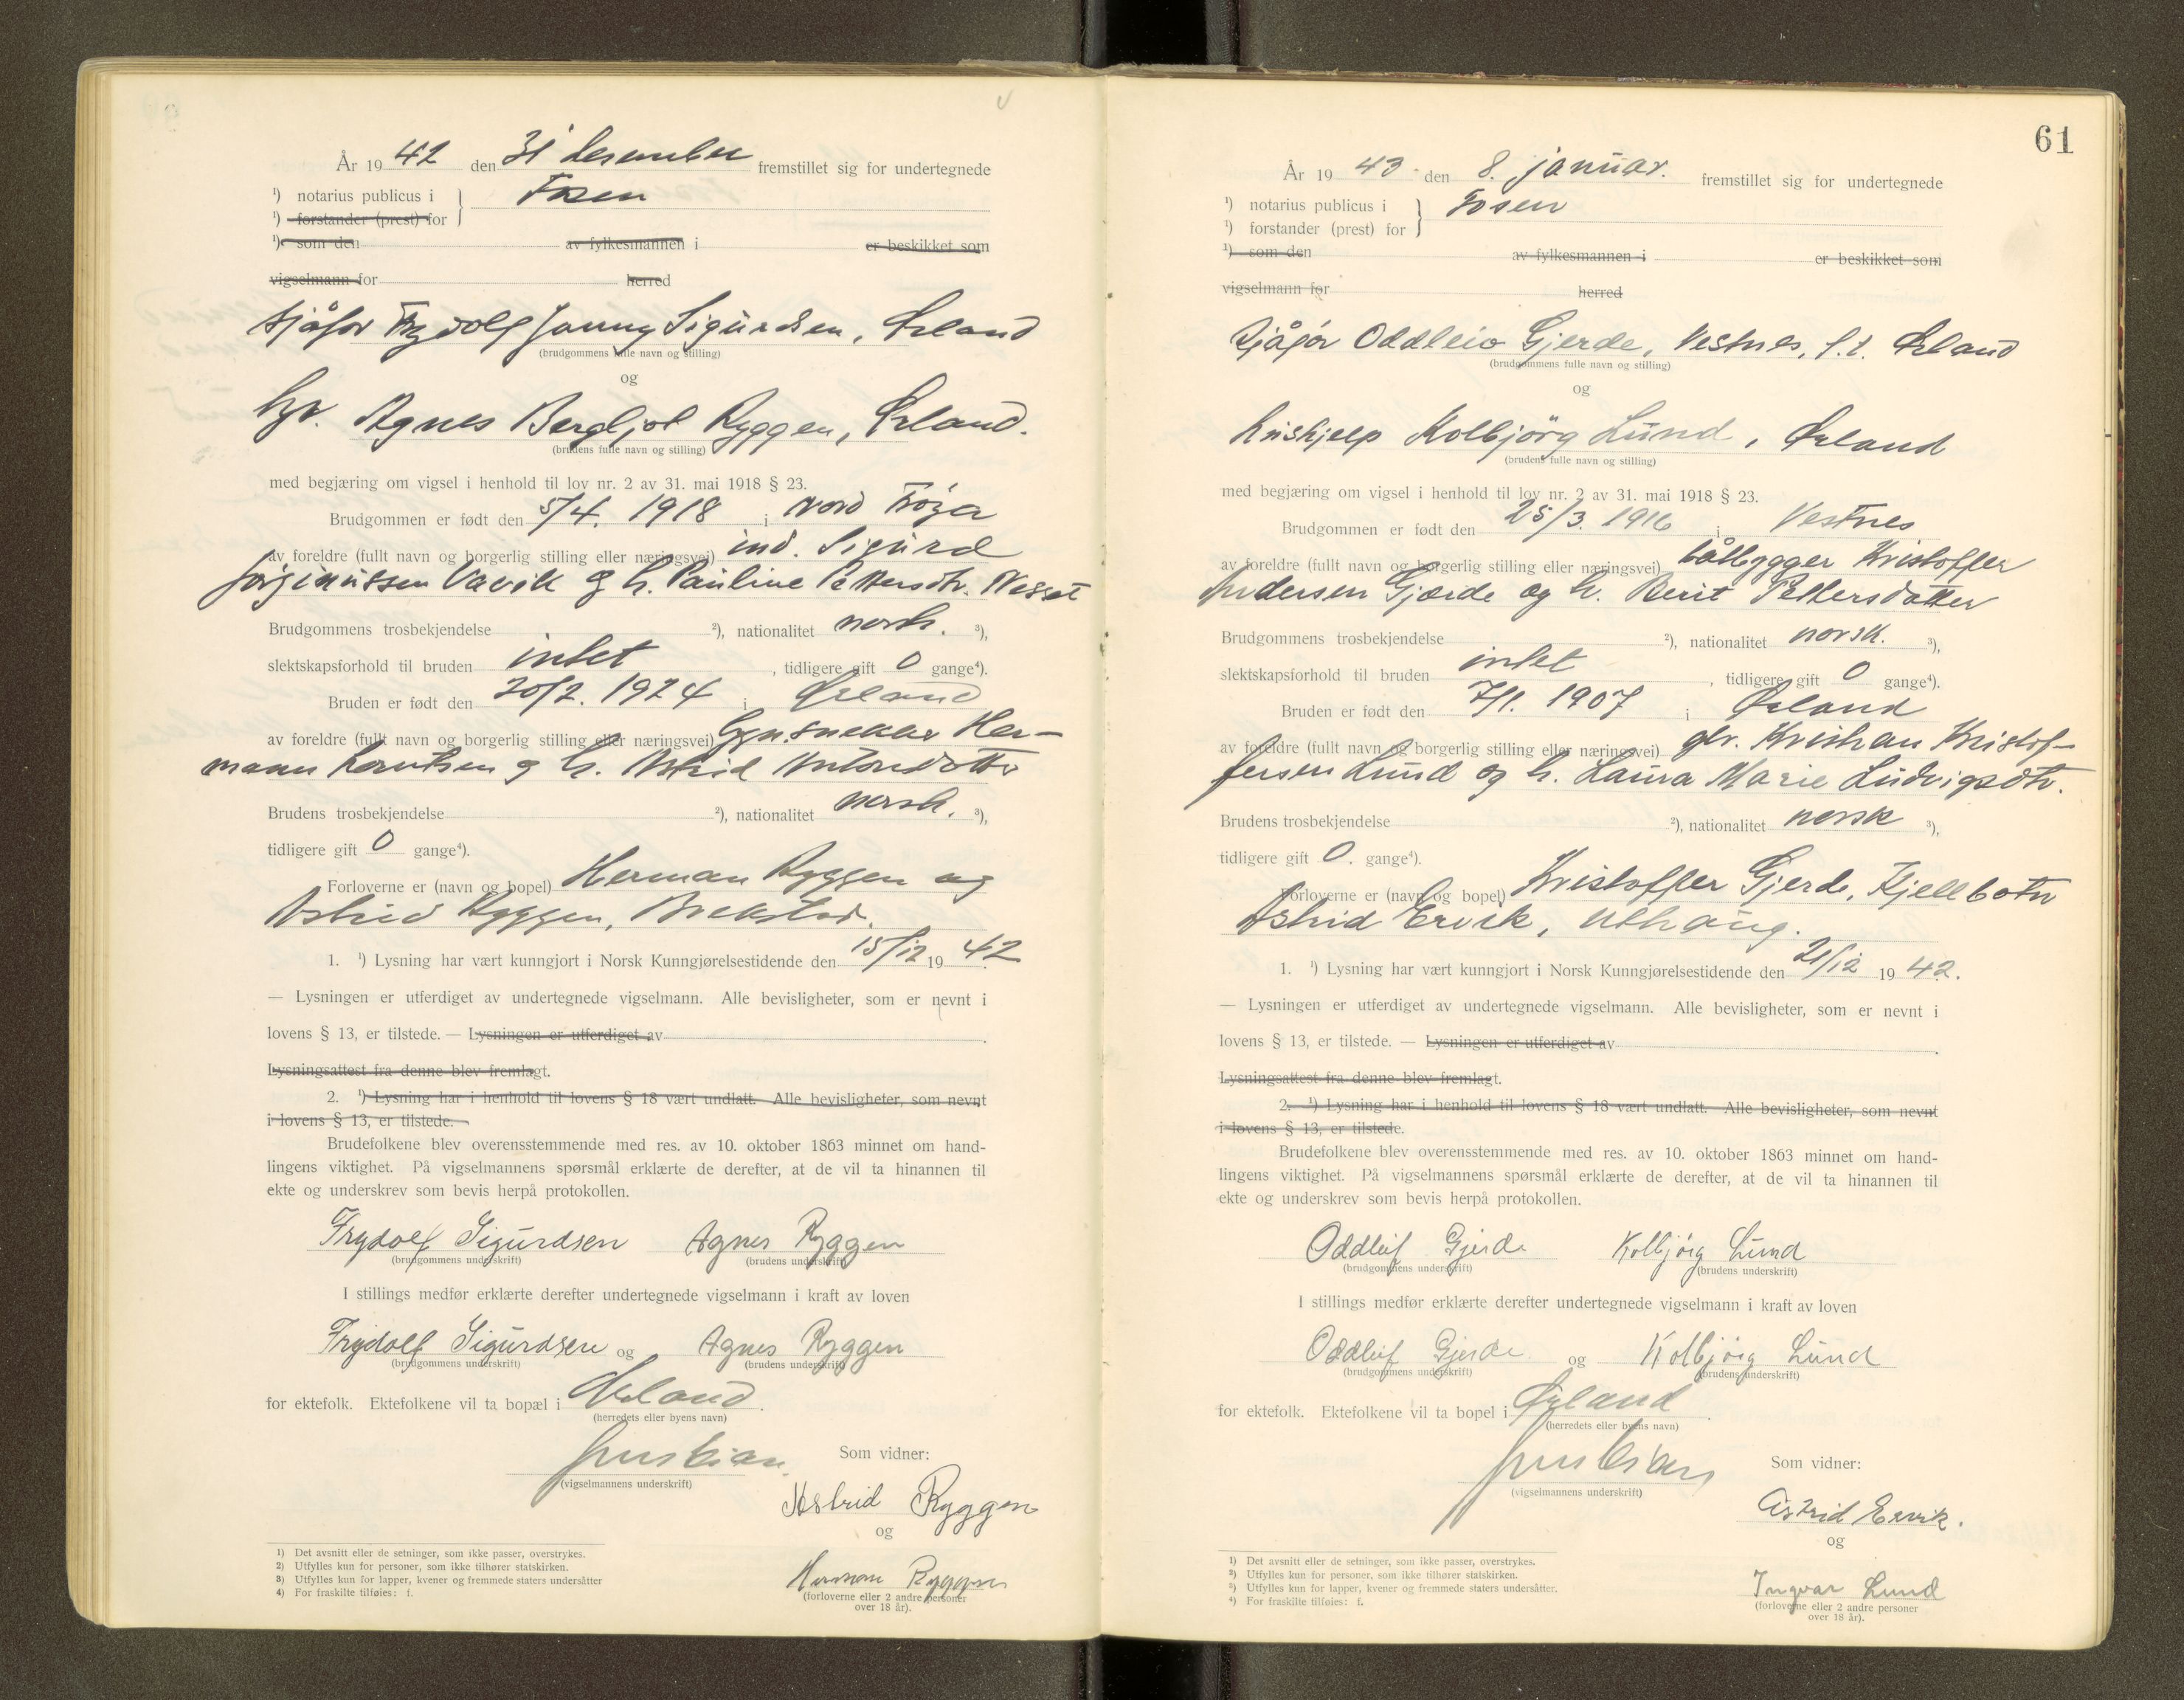 År 19 42 den 31 desember fremstillet sig for undertegnede
¹) notarius publicus i Fosen
¹) forstander (prest) for
¹) som den av fylkesmannen i er beskikket som
vigselmann for herred
sjåfør Frydolf Sigurdsen, Ørland
(brudgommens fulle navn og stilling)
og
Agnes Bergljot Ryggen, Ørland.
(brudens fulle navn og stilling)
med begjæring om vigsel i henhold til lov nr. 2 av 31. mai 1918 § 23.
Brudgommen er født den 5/4. 1918 i Nord Frøya
av foreldre (fullt navn og borgerlig stilling eller næringsvei) ind. Sigurd
Jørginussen Vavik og h. Pauline Pettersdtr. Nesset
Brudgommens trosbekjendelse ²), nationalitet norsk. ³),
slektskapsforhold til bruden intet, tidligere gift 0 gange⁴).
Bruden er født den 20/2. 1924 i Ørland
av foreldre (fullt navn og borgerlig stilling eller næringsvei) Her-
mann og h. Astrid Antonsdatter
Brudens trosbekjendelse ²), nationalitet norsk. ³),
tidligere gift 0 gange⁴).
Forloverne er (navn og bopel) Herman Ryggen og
Astrid Ryggen, Brekstad.
1. ¹) Lysning har vært kunngjort i Norsk Kunngjørelsestidende den 15/12 19 42.
— Lysningen er utferdiget av undertegnede vigselmann. Alle bevisligheter, som er nevnt i
lovens § 13, er tilstede. — Lysningen er utferdiget av
Lysningsattest fra denne blev fremlagt.
2. ¹) Lysning har i henhold til lovens § 18 vært undlatt. Alle bevisligheter, som nevnt
i lovens § 13, er tilstede.
Brudefolkene blev overensstemmende med res. av 10. oktober 1863 minnet om hand-
lingens viktighet. På vigselmannens spørsmål erklærte de derefter, at de vil ta hinannen til
ekte og underskrev som bevis herpå protokollen.
Frydolf Sigurdsen Agnes Ryggen
(brudgommens underskrift) (brudens underskrift)
I stillings medfør erklærte derefter undertegnede vigselmann i kraft av loven
Frydolf Sigurdsen og Agnes Ryggen
(brudgommens underskrift) (brudens underskrift)
for ektefolk. Ektefolkene vil ta bopæl i Ørland.
(herredets eller byens navn)
Som vidner:
(vigselmannens underskrift)
Astrid Ryggen
og
Hermann Ryggen
(forloverne eller 2 andre personer
over 18 år).
1) Det avsnitt eller de setninger, som ikke passer, overstrykes.
2) Utfylles kun for personer, som ikke tilhører statskirken.
3) Utfylles kun for lapper, kvener og fremmede staters undersåtter
4) For fraskilte tilføies: f.
61
År 19 43 den 8. januar. fremstillet sig for undertegnede
¹) notarius publicus i Fosen
¹) forstander (prest) for
¹) som den av fylkesmannen i er beskikket som
vigselmann for herred
Sjåfør Oddleiv Gjerde, Vestnes, f.t. Ørland
(brudgommens fulle navn og stilling)
og
hushjelp Kolbjörg Lund, Ørland
(brudens fulle navn og stilling)
med begjæring om vigsel i henhold til lov nr. 2 av 31. mai 1918 § 23.
Brudgommen er født den 25/3. 1916 i Vestnes
av foreldre (fullt navn og borgerlig stilling eller næringsvei) båtbygger Kristoffer
Andersen Gjærde og h. Berit Pettersdatter
Brudgommens trosbekjendelse ²), nationalitet norsk. ³),
slektskapsforhold til bruden intet, tidligere gift 0 gange⁴).
Bruden er født den 7/1. 1907 i Ørland
av foreldre (fullt navn og borgerlig stilling eller næringsvei) gbr. Kristian Kristof-
fersen Lund og h. Laura Marie Ludvigsdtr.
Brudens trosbekjendelse ²), nationalitet norsk ³),
tidligere gift 0. gange⁴).
Forloverne er (navn og bopel) Kristoffer Gjerde, Fjellbotn
Astrid Ervik, Uthaug.
1. ¹) Lysning har vært kunngjort i Norsk Kunngjørelsestidende den 21/12 19 42.
— Lysningen er utferdiget av undertegnede vigselmann. Alle bevisligheter, som er nevnt i
lovens § 13, er tilstede. — Lysningen er utferdiget av
Lysningsattest fra denne blev fremlagt.
2. ¹) Lysning har i henhold til lovens § 18 vært undlatt. Alle bevisligheter, som nevnt
i lovens § 13, er tilstede.
Brudefolkene blev overensstemmende med res. av 10. oktober 1863 minnet om hand-
lingens viktighet. På vigselmannens spørsmål erklærte de derefter, at de vil ta hinannen til
ekte og underskrev som bevis herpå protokollen.
Oddleif Gjerde Kolbjørg Lund
(brudgommens underskrift) (brudens underskrift)
I stillings medfør erklærte derefter undertegnede vigselmann i kraft av loven
Oddleif Gjerde og Kolbjørg Lund
(brudgommens underskrift) (brudens underskrift)
for ektefolk. Ektefolkene vil ta bopel i Ørland.
(herredets eller byens navn)
Som vidner:
(vigselmannens underskrift)
Astrid Ervik.
og
Ingvar Lund
(forloverne eller 2 andre personer
over 18 år).
¹) Det avsnitt eller de setninger, som ikke passer, overstrykes.
²) Utfylles kun for personer, som ikke tilhører statskirken.
³) Utfylles kun for lapper, kvener og fremmede staters undersåtter.
⁴) For fraskilte tilføies: f.